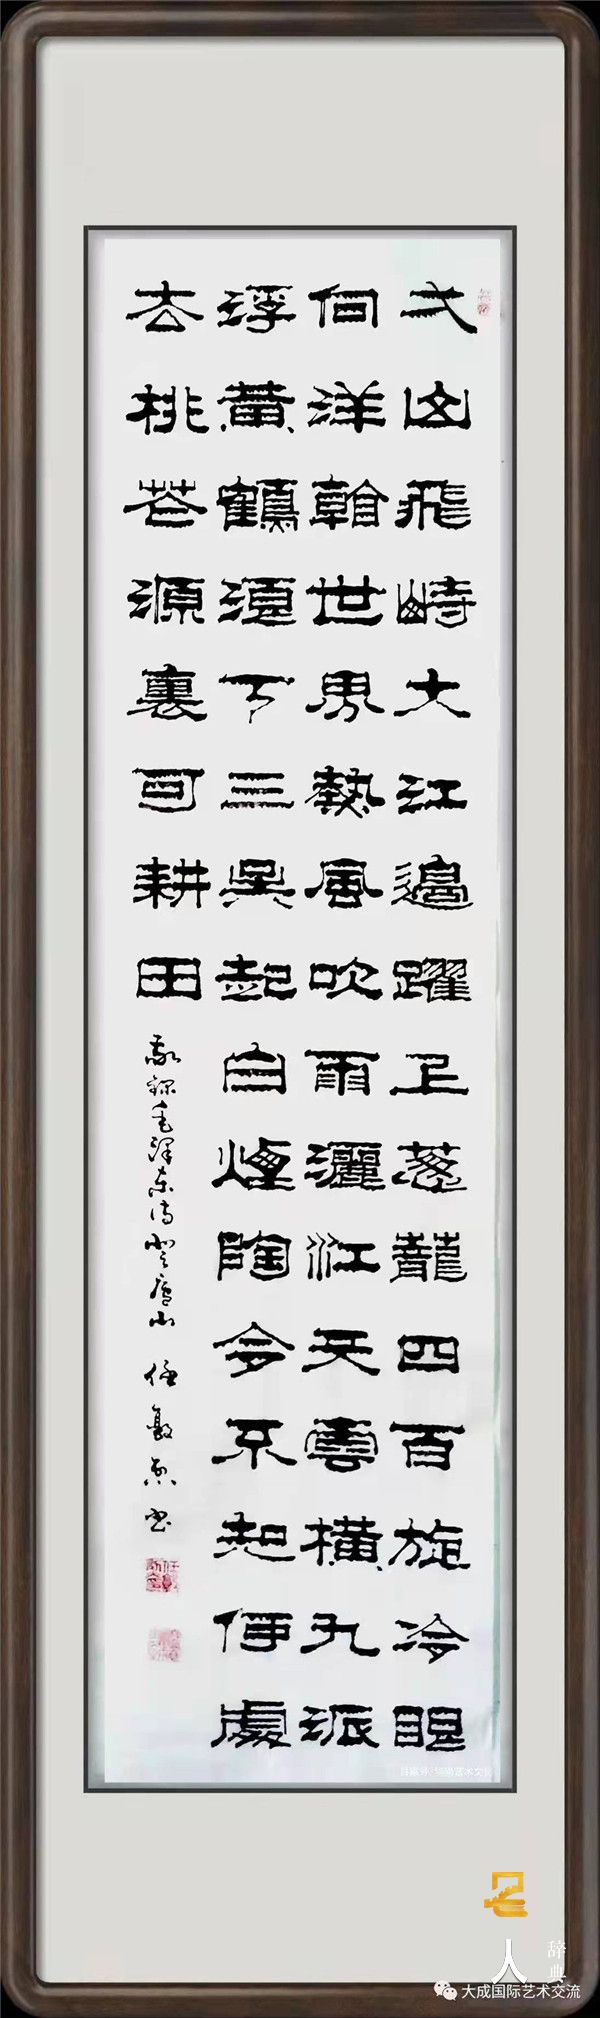 弌山飛峙大江邊躍上葱蘢四百旋冷眼
向洋看世界熱風吹雨灑江天雲橫九派
浮黄鶴浪下三吴起白煙陶令不知何處
去桃花源裏可耕田
敬録毛澤東詩登廬山 任
人
辞典
大成国际艺术交流